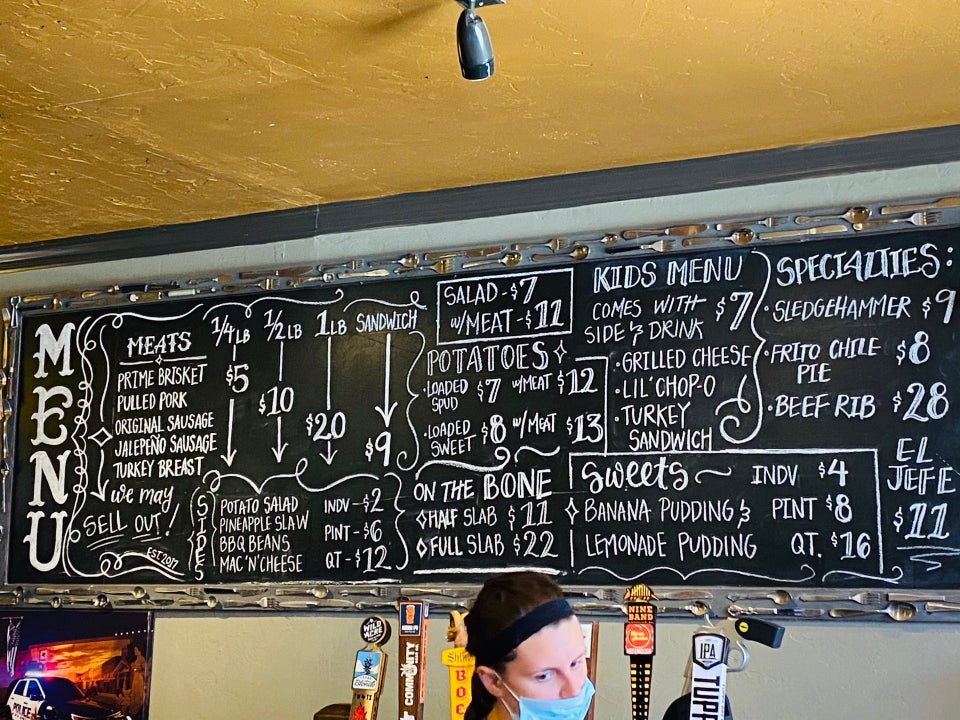 MENU
MEATS
1/4 LB 1/2 LB 1 LB SANDWICH
PRIME BRISKET
PULLED PORK
ORIGINAL SAUSAGE
JALEPEÑO SAUSAGE
TURKEY BREAST
$5 $10 $20 $9
we may
SELL OUT!
EST. 2017
SIDES
POTATO SALAD
PINEAPPLE SLAW
BBQ BEANS
MAC'N'CHEESE
INDV - $2
PINT - $6
QT - $12
SALAD - $7
W/MEAT - $11
POTATOES
LOADED SPUD $7 W/MEAT $12
LOADED SWEET $8 W/MEAT $13
ON THE BONE
HALF SLAB $11
FULL SLAB $22
KIDS MENU
COMES WITH
SIDE & DRINK $7
· GRILLED CHEESE
· LIL' CHOP-O
· TURKEY
SANDWICH
Sweets
BANANA PUDDING &
LEMONADE PUDDING
INDV $4
PINT $8
QT. $16
SPECIALTIES:
· SLEDGEHAMMER $9
· FRITO CHILE
PIE $8
· BEEF RIB $28
EL
JEFE
$11
POLICE
WILD
ACRE
COMMUNITY
NINE
BAND
IPA